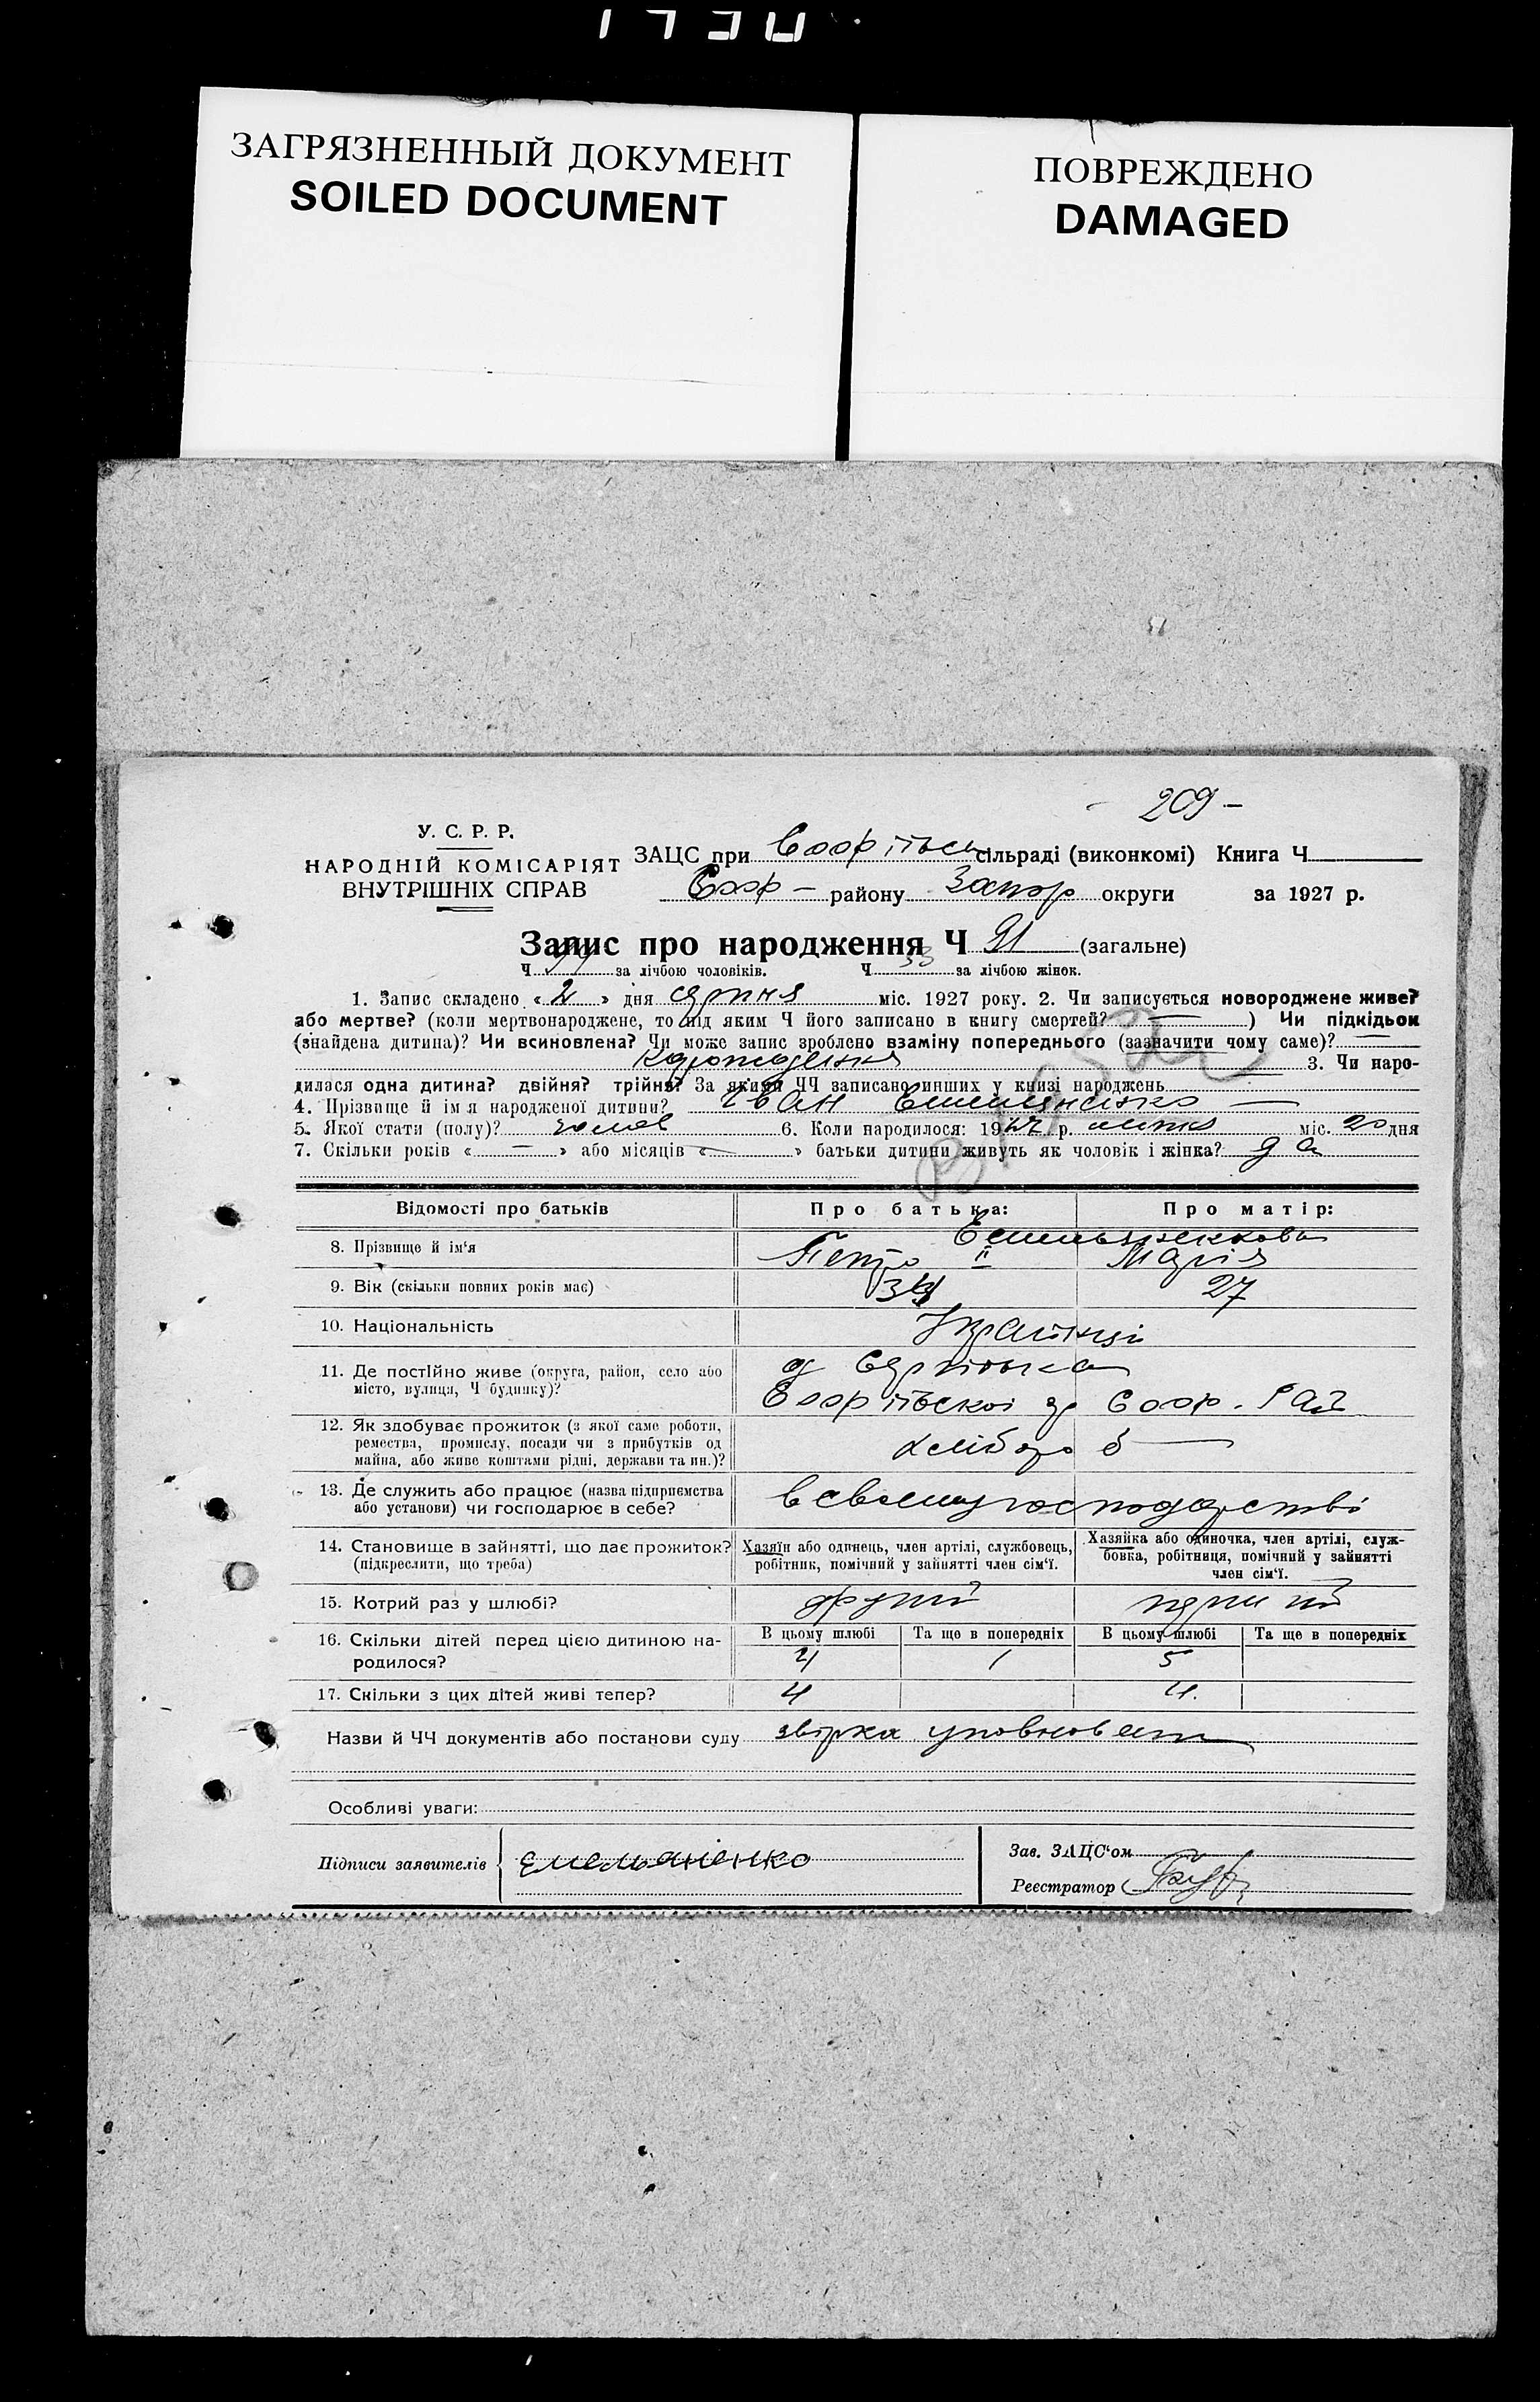 ЗАГРЯЗНЕННЫЙ ДОКУМЕНТ
SOILED DOCUMENT
ПОВРЕЖДЕНО
DAMAGED
209 –
У. С. Р. Р.
НАРОДНІЙ КОМІСАРІЯТ
ВНУТРІШНІХ СПРАВ
ЗАЦС при сільраді (виконкомі) Книга Ч
району Запор округи за 1927 р.
Запис про народження Ч 91 (загальне)
Ч за лічбою чоловіків. Ч 33 за лічбою жінок.
1. Запис складено «2» дня серпня міс. 1927 року. 2. Чи записується новороджене живе?
або мертве? (коли мертвонароджене, то під яким Ч його записано в книгу смертей? —) Чи підкідьок
(знайдена дитина)? Чи всиновлена? Чи може запис зроблено взаміну попереднього (зазначити чому саме)? —
3. Чи наро-
дилася одна дитина? двійня? трійня? За якими ЧЧ записано инших у книзі народжень
4. Прізвище й імя народженої дитини? Іван Емельяненко —
5. Якої стати (полу)? чолов 6. Коли народилося: 1927 р. липня міс. 20 дня
7. Скільки років « — » або місяців « — » батьки дитини живуть як чоловік і жінка? да
Відомості про батьків
Про батька:
Про матір:
8. Прізвище й ім'я
Емельяненкови
Петро ІІ Марія
9. Вік (скільки повних років має)
27
10. Національність
Українці
11. Де постійно живе (округа, район, село або
місто, вулиця, Ч будинку)?
12. Як здобуває прожиток (з якої саме роботи,
ремества, промислу, посади чи з прибутків од
майна, або живе коштами рідні, держави та ин.)?
хлібороб —
13. Де служить або працює (назва підприємства
або установи) чи господарює в себе?
в своему господарстві
14. Становище в зайнятті, що дає прожиток?
(підкреслити, що треба)
Хазяїн або одинець, член артілі, службовець,
робітник, помічний у зайнятті член сім'ї.
Хазяйка або одиночка, член артілі, служ-
бовка, робітниця, помічний у зайнятті
член сім'ї.
15. Котрий раз у шлюбі?
другий перший
16. Скільки дітей перед цією дитиною на-
родилося?
В цьому шлюбі Та ще в попередніх В цьому шлюбі Та ще в попередніх
4 1 5
17. Скільки з цих дітей живі тепер?
4 4.
Назви й ЧЧ документів або постанови суду звірка уповноваж
Особливі уваги:
Підписи заявителів Емельяненко
Зав. ЗАЦС'ом
Реєстратор